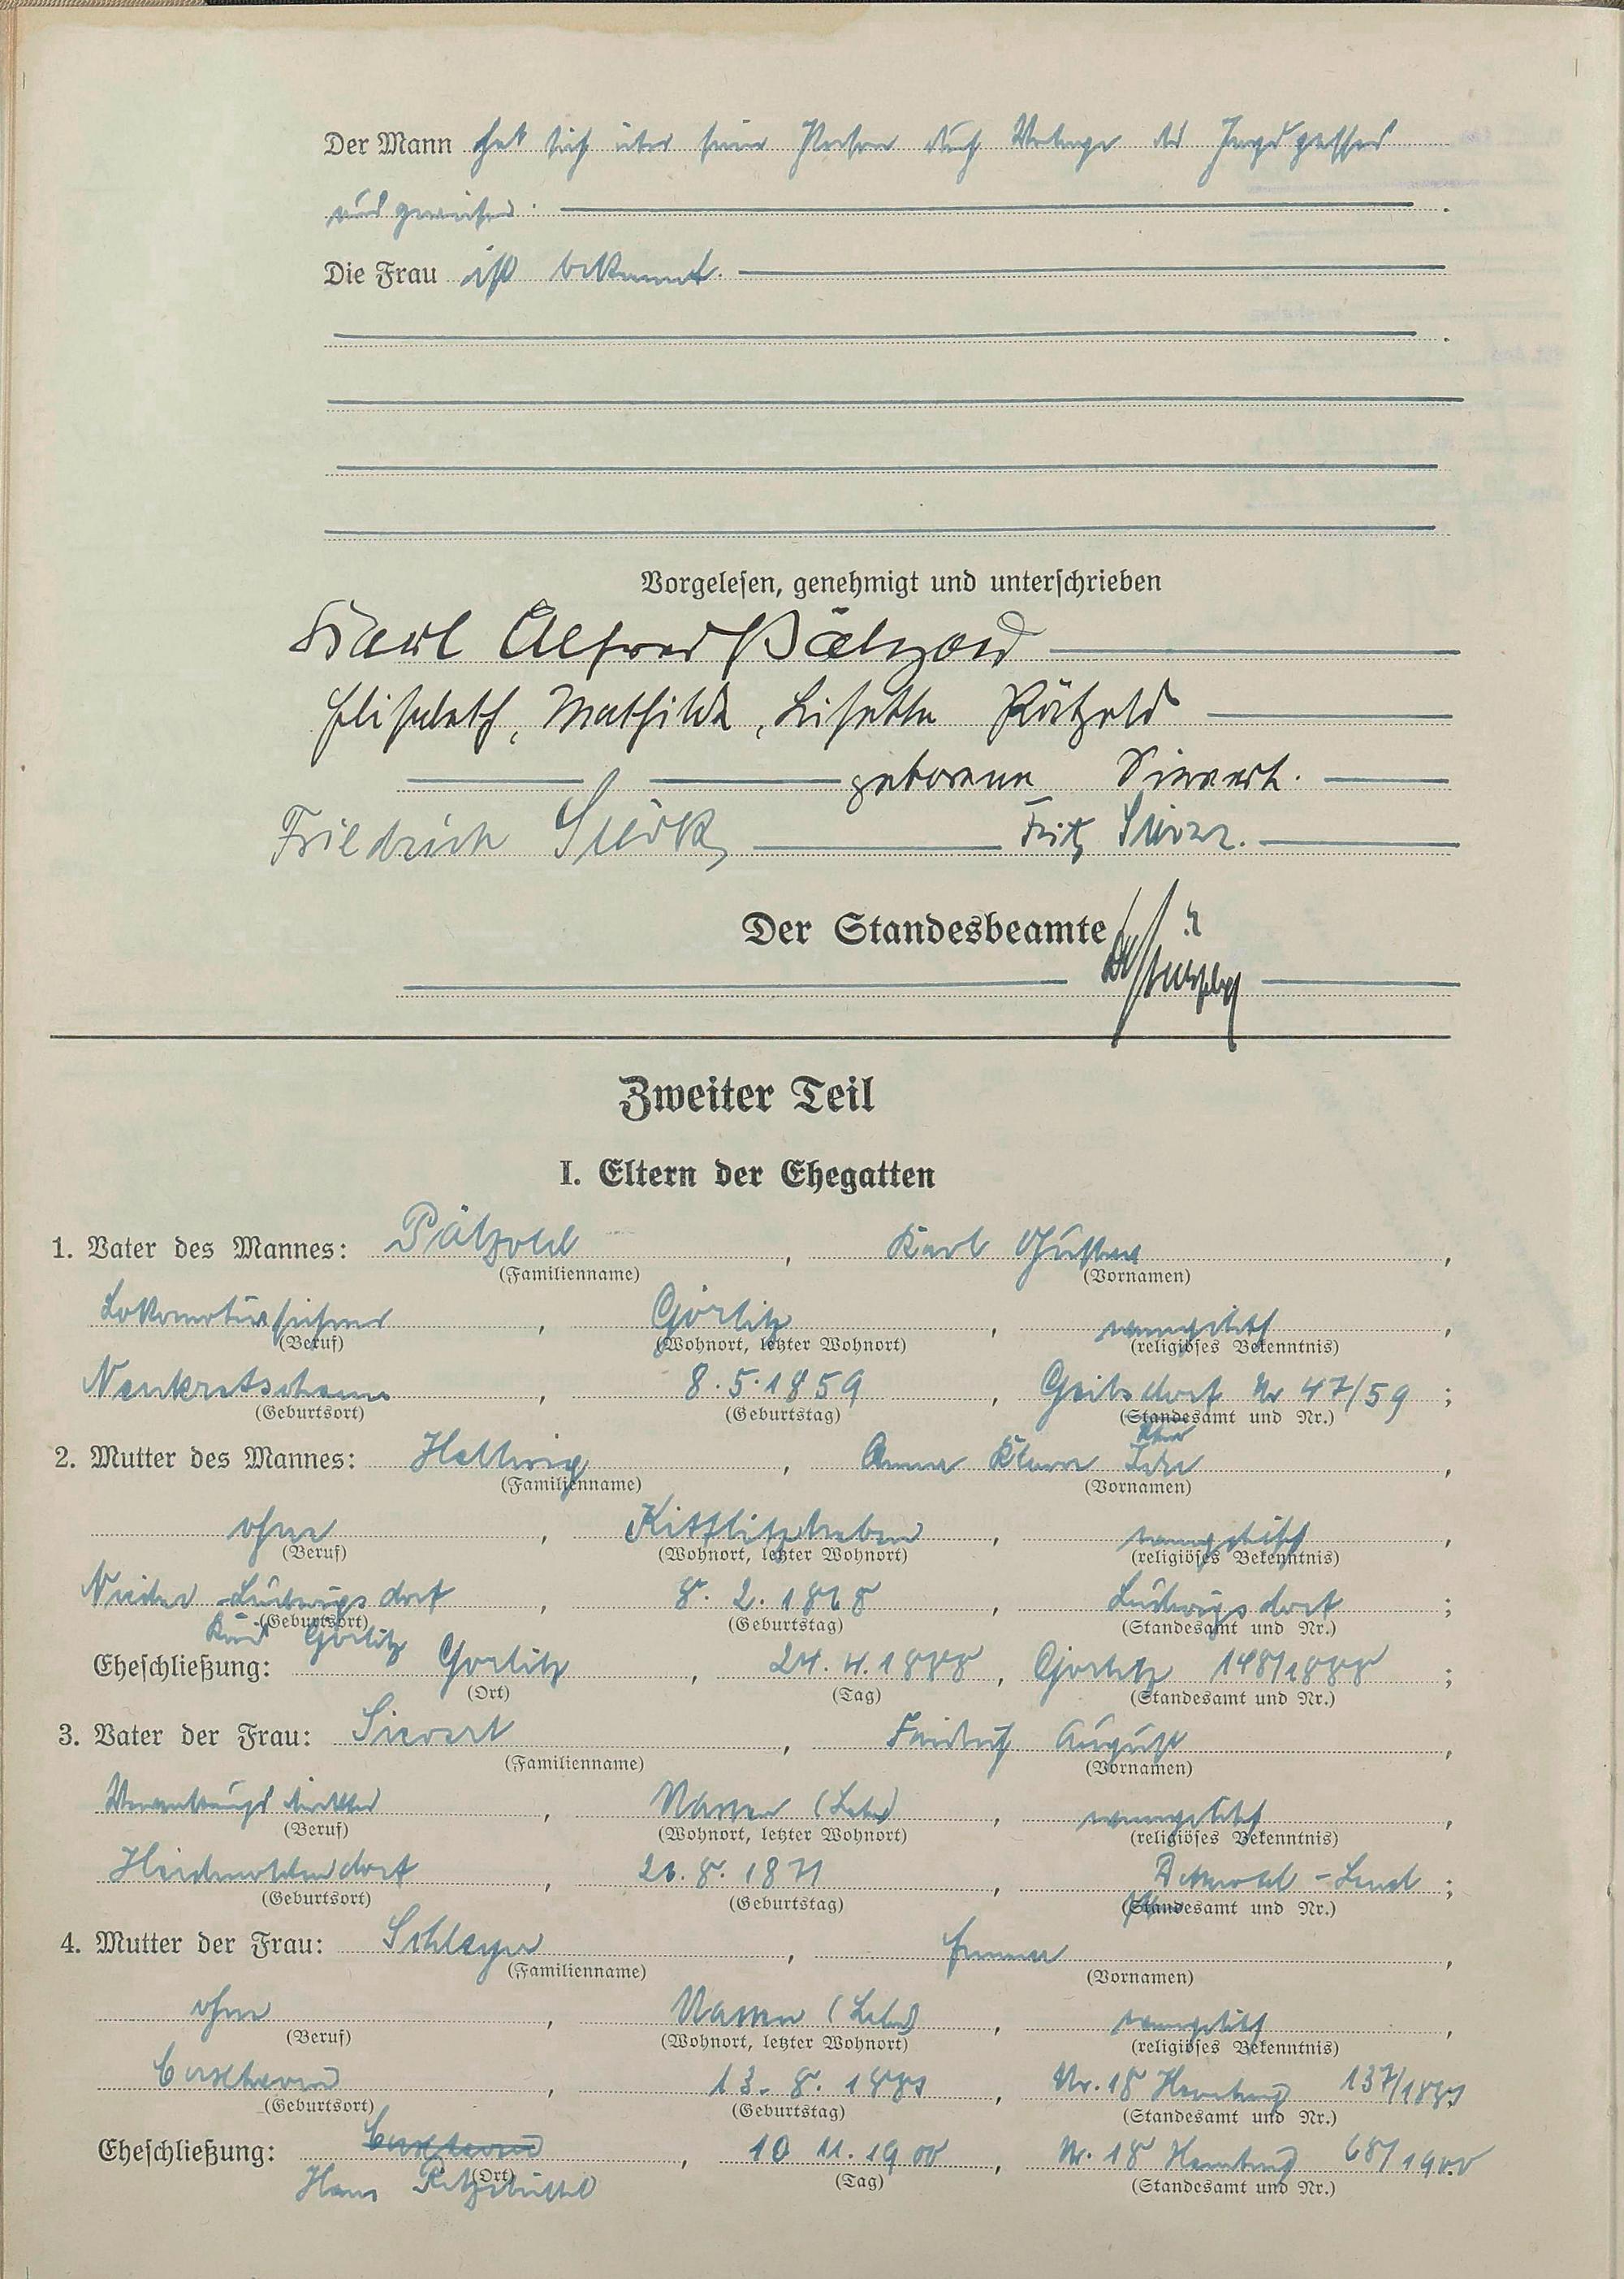 Der Mann hat sich über seine Person durch Vorlage des Jagdpasses
ausgewiesen.
Die Frau ist bekannt.
Vorgelesen, genehmigt und unterschrieben
Karl Alfred Pätzold
Elisabeth, Mathilde, Lisette Pätzold
geborene Sievert.
Friedrich
Fritz
Der Standesbeamte
Zweiter Teil
I. Eltern der Ehegatten
1. Vater des Mannes: Pätzold, Karl Gustav,
(Familienname) (Vornamen)
Lokomotivführer, Görlitz, evangelisch,
(Beruf) (Wohnort, letzter Wohnort) (religiöses Bekenntnis)
Neukretscham, 8.5.1859, Geibsdorf Nr 47/59;
(Geburtsort) (Geburtstag) (Standesamt und Nr.)
2. Mutter des Mannes: Hellwig, Anna Klara Ida,
(Familienname) (Vornamen)
ohne, Kittlitztreben, evangelisch,
(Beruf) (Wohnort, letzter Wohnort) (religiöses Bekenntnis)
Nieder-Ludwigsdorf, 8.2.1868, Ludwigsdorf;
(Geburtsort) (Geburtstag) (Standesamt und Nr.)
Görlitz
Eheschließung: Görlitz, 24.4.1888, Görlitz 148/1888;
(Ort) (Tag) (Standesamt und Nr.)
3. Vater der Frau: Sievert, Friedrich August,
(Familienname) (Vornamen)
Verwaltungsdirektor, Nassau (Lahn), evangelisch,
(Beruf) (Wohnort, letzter Wohnort) (religiöses Bekenntnis)
Heidenoldendorf, 26.8.1871, Detmold-Land;
(Geburtsort) (Geburtstag) (Standesamt und Nr.)
4. Mutter der Frau: Schleyer, Emma,
(Familienname) (Vornamen)
ohne, Nassau (Lahn), evangelisch,
(Beruf) (Wohnort, letzter Wohnort) (religiöses Bekenntnis)
Cuxhaven, 13.8.1881, Nr. 18 Hamburg 137/1881
(Geburtsort) (Geburtstag) (Standesamt und Nr.)
Eheschließung: Cuxhaven, 10.11.1900, Nr. 18 Hamburg 68/1900
(Ort) (Tag) (Standesamt und Nr.)
Ritzebüttel